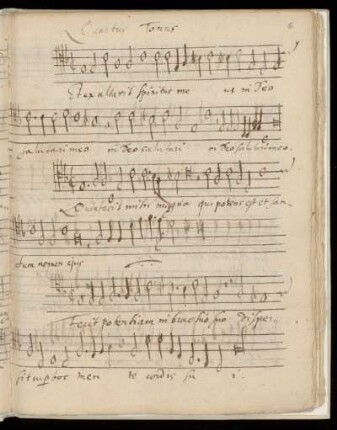 Quartus Tonus 6
Et exultavit spiritus me us in Deo
salutari meo in Deo salutari in Deo salutari meo.
Quia fecit mihi magna qui potens est et san
ctum nomen ejus
Fecit potentiam in brachio suo disper
sit superbos men te cordis su i.